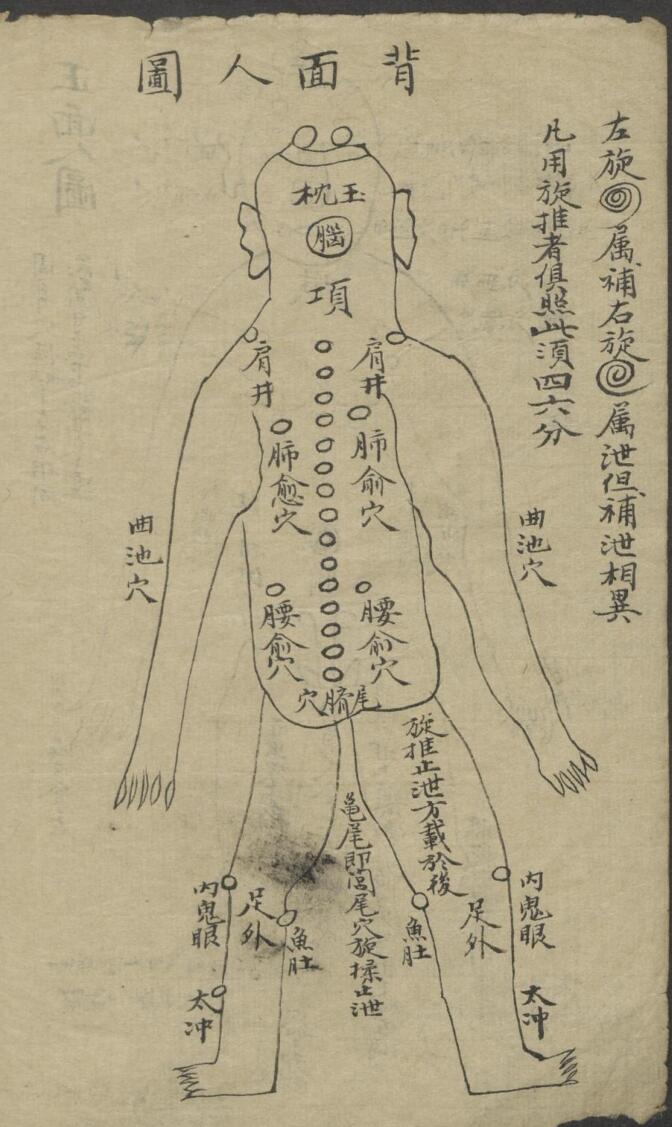 背面人圖
左旋属補右旋属泄但補泄相異
凡用旋推者俱照此須四六分
玉枕
腦
項
肩井
肩井
肺俞穴
肺愈穴
曲池穴
曲池穴
腰俞穴
腰愈穴
尾臍穴
旋推止泄方載於後
龜尾即閭尾穴旋揉止泄
内鬼眼
足外
魚肚
太冲
魚肚
足外
内鬼眼
太冲